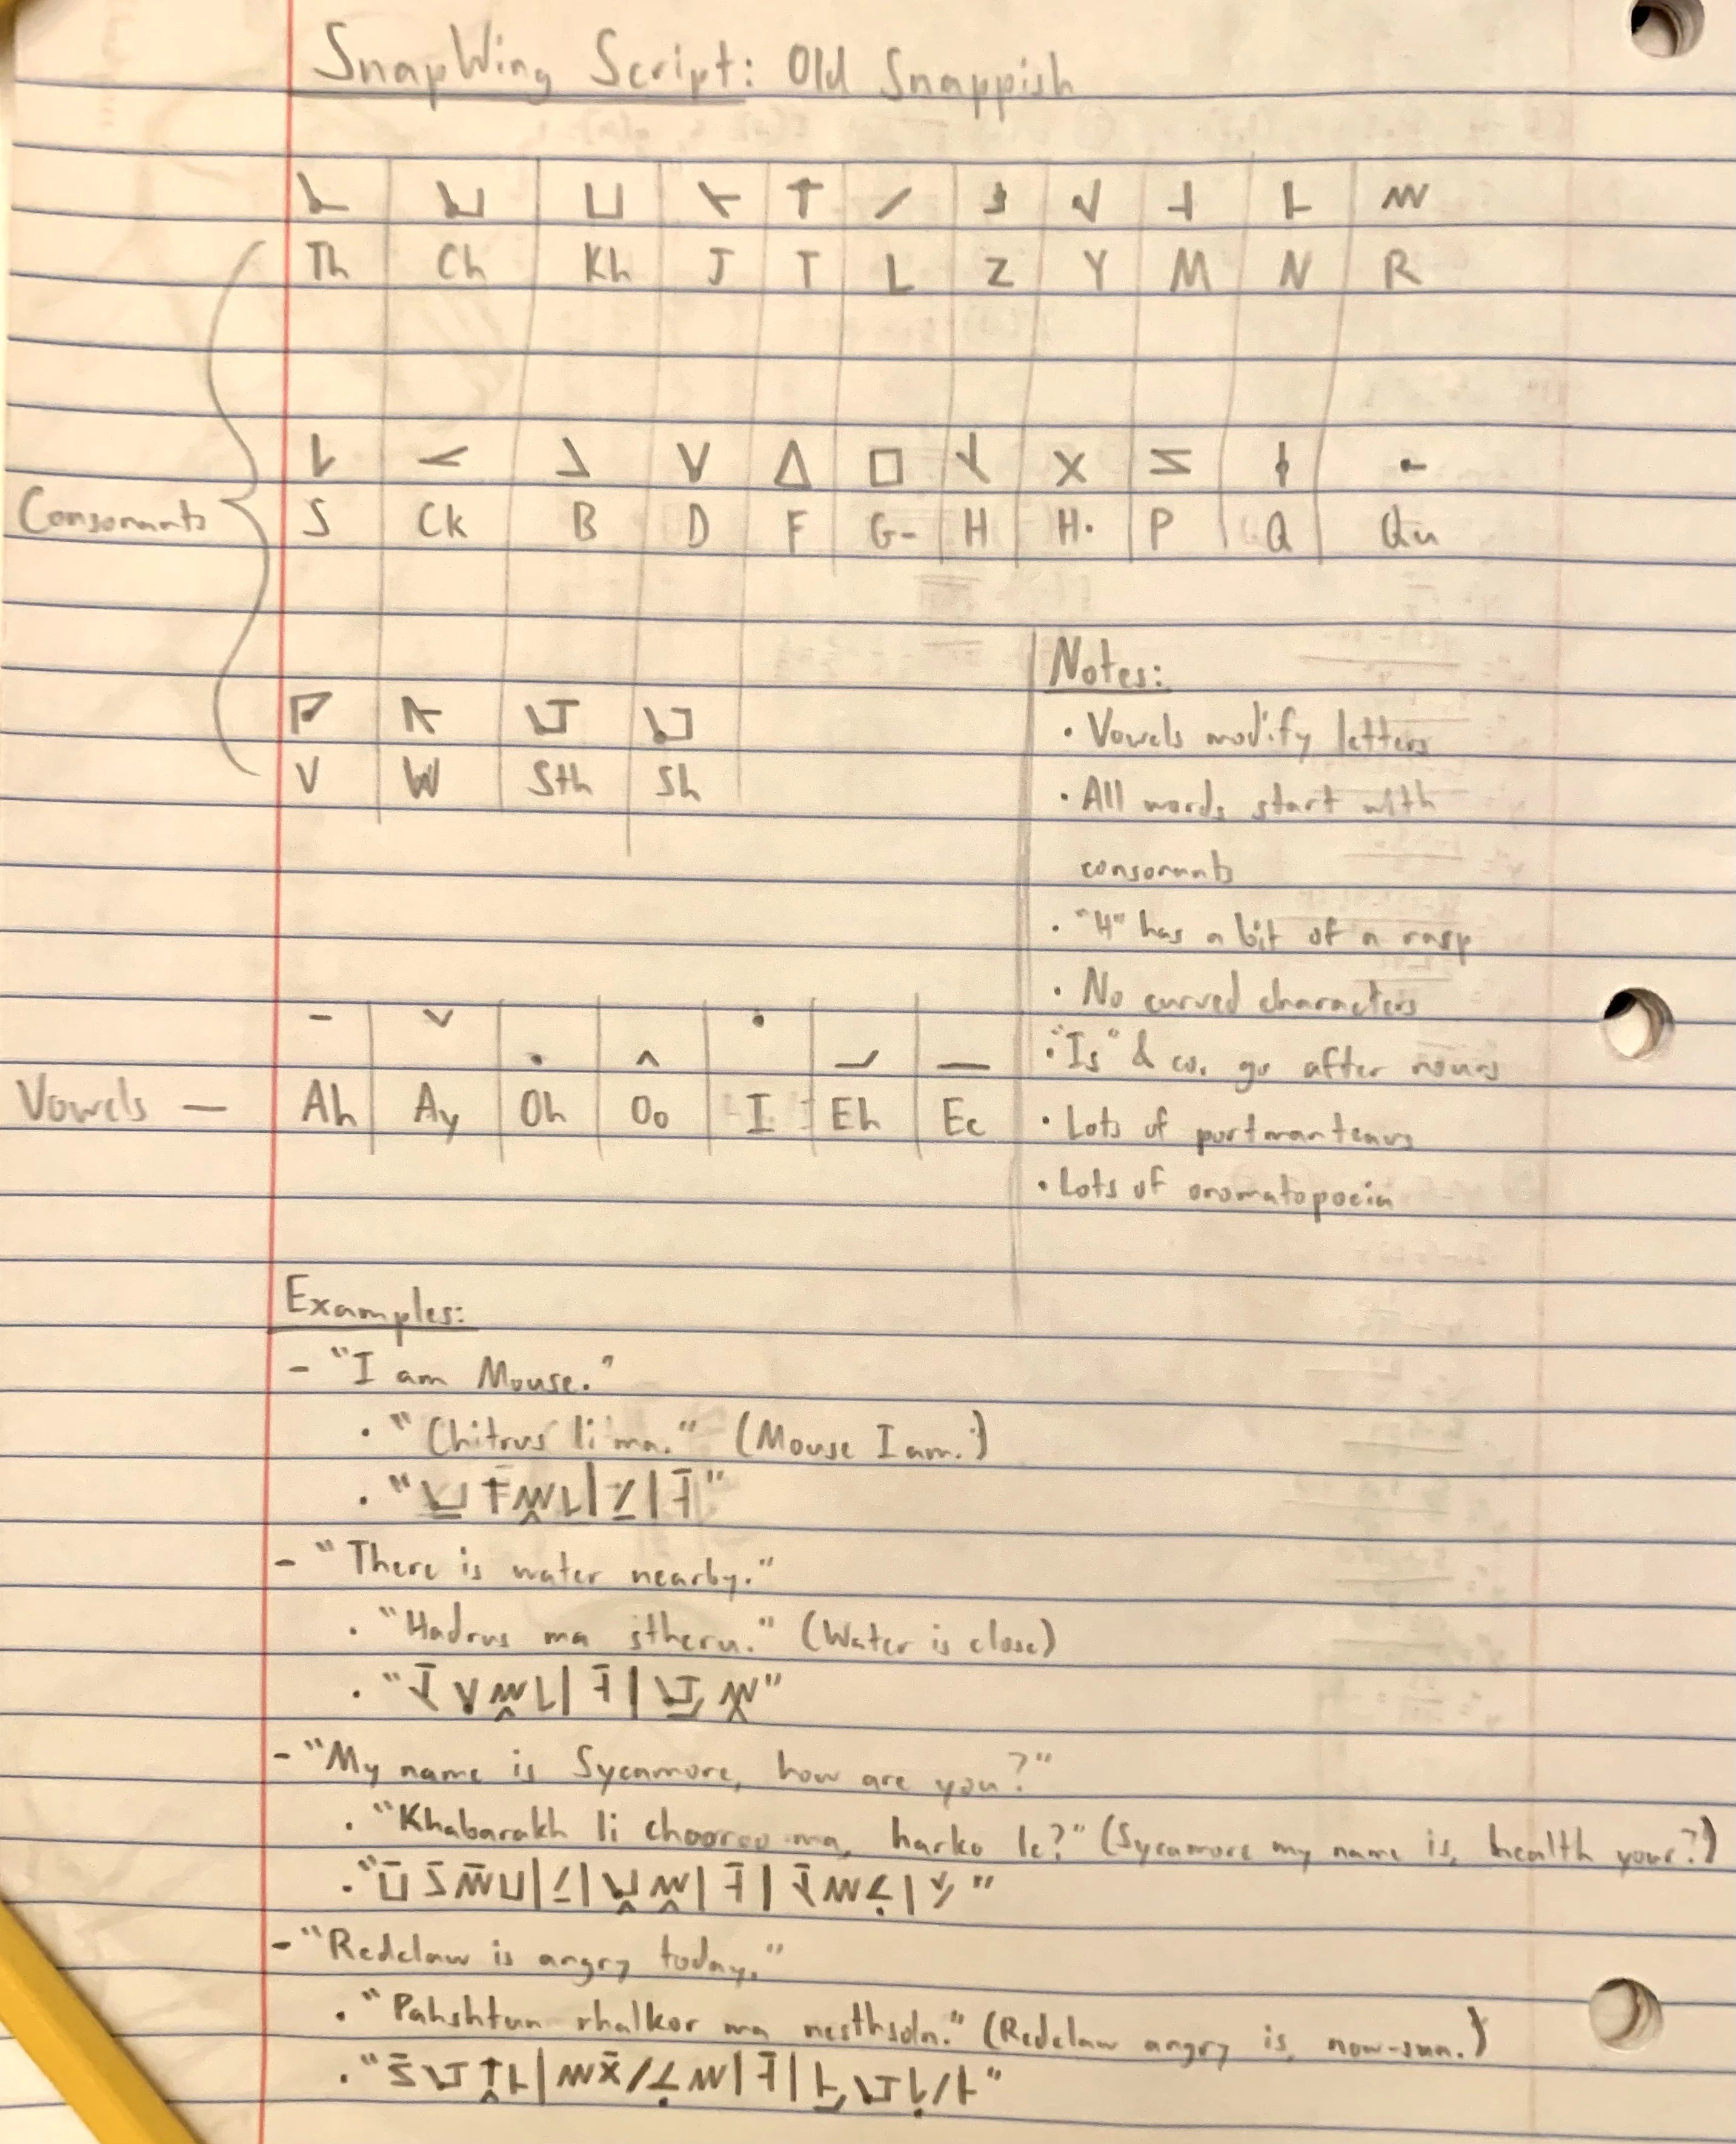 SnapWing Script: Old Snappish
Th Ch Kh J T L Z Y M N R
Consonants
S Ck B D F G- H H· P Q Qu
V W Sth Sh
Notes:
· Vowels modify letters
· All words start with
consonants
· "H" has a bit of a rasp
· No curved characters
· "Is" & co. go after nouns
· Lots of portmanteaus
· Lots of onomatopoeia
Vowels — Ah Ay Oh Oo I Eh Ee
Examples:
- "I am Mouse."
· "Chitrus li ma." (Mouse I am.)
- "There is water nearby."
· "Hadrus ma stheru." (Water is close)
- "My name is Sycamore, how are you?"
· "Khabarakh li chooroo ma, harko le?" (Sycamore my name is, health your?)
- "Redclaw is angry today."
· "Pahshtun rhalkor ma nesthsoln." (Redclaw angry is, now-sun.)